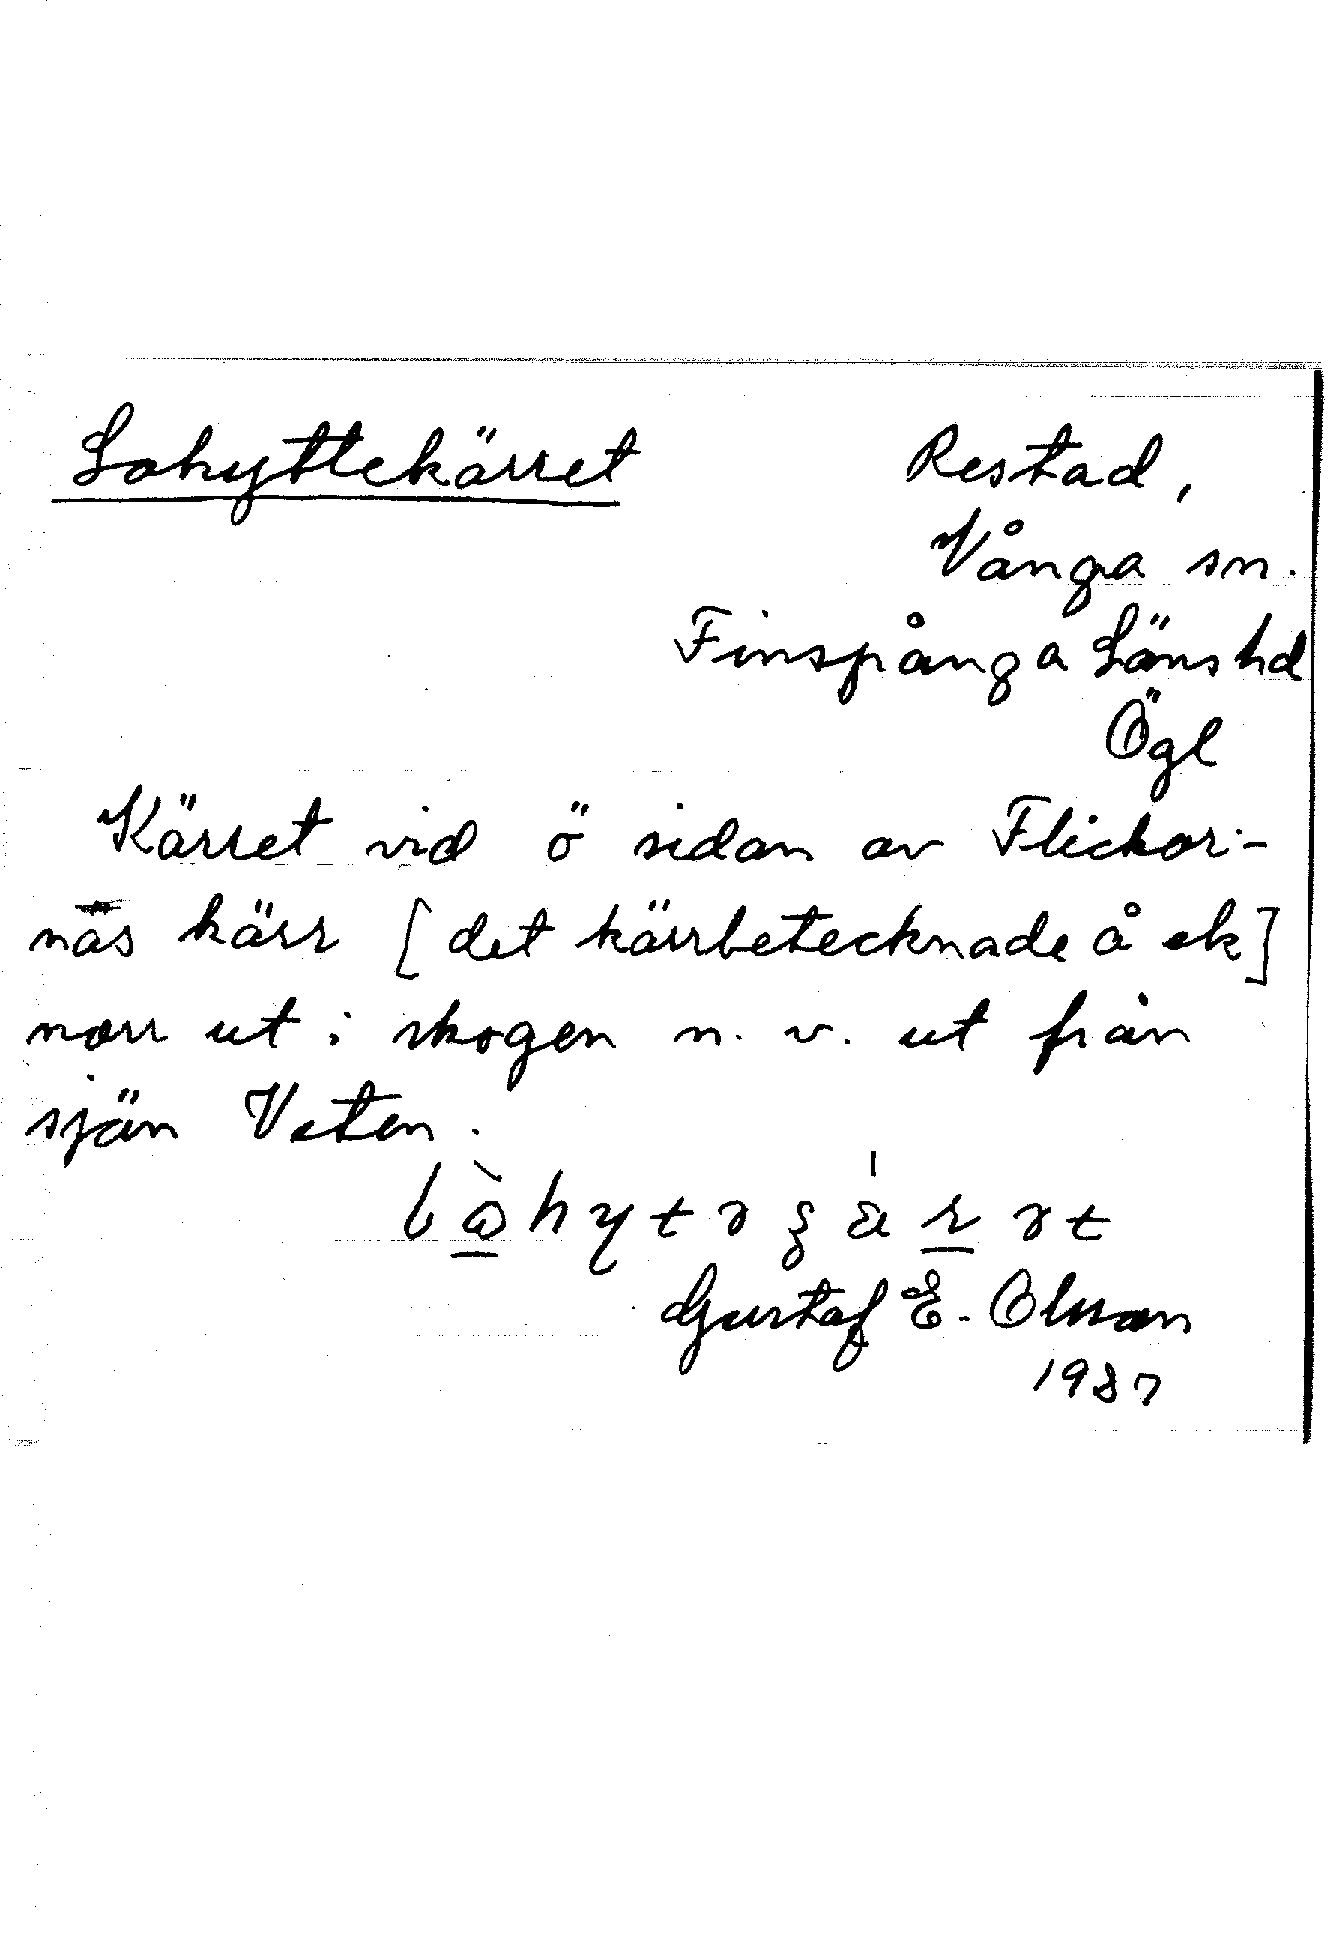 Lohyttekärret
Restad,
Vånga sn.
Finspånga Läns hd
Ögl
Kärret vid ö sidan av Flickor-
nas kärr [det kärrbetecknade å ek]
norr ut i skogen n. v. ut från
sjön Veten.
Gustaf E. Olsson
1987